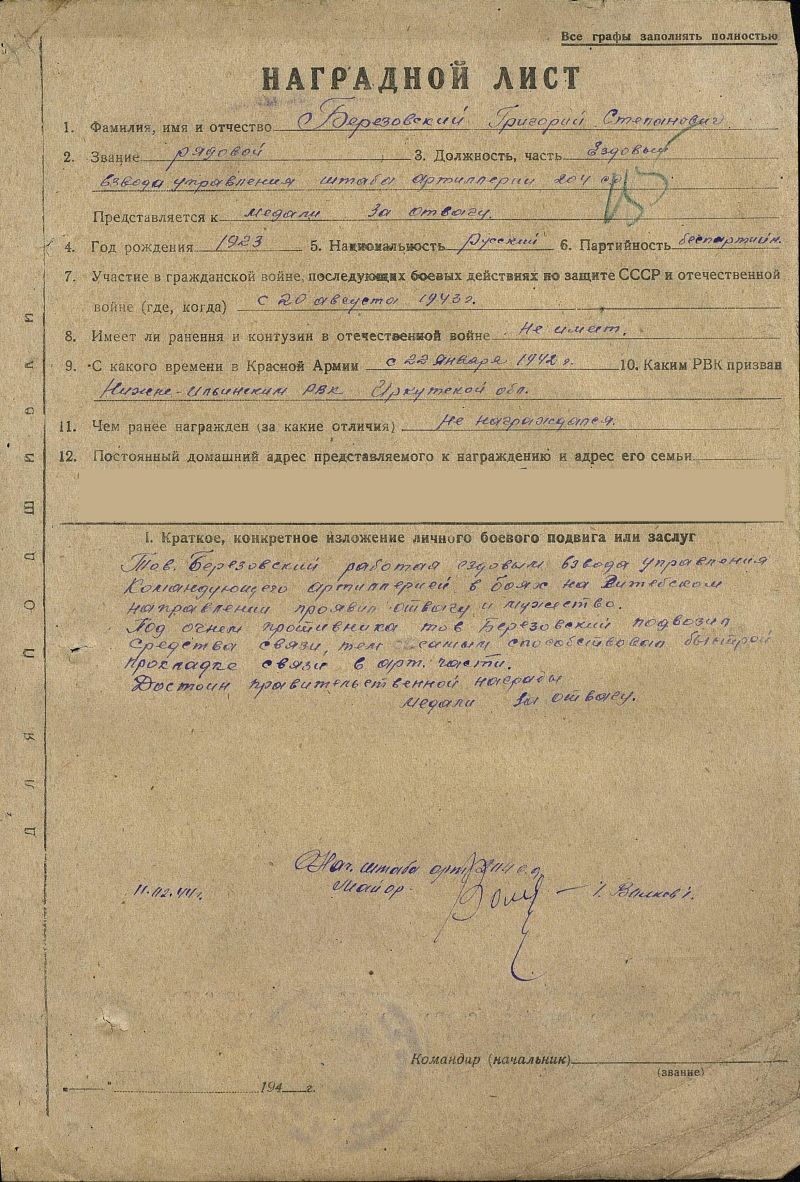 Все графы заполнять полностью
НАГРАДНОЙ ЛИСТ
1. Фамилия, имя и отчество Березовский Григорий Степанович
2. Звание рядовой 3. Должность, часть Ездовый
взвода управления штаба артиллерии 204 сд
Представляется к медали За отвагу.
4. Год рождения 1923 5. Национальность Русский 6. Партийность беспартийн.
7. Участие в гражданской войне, последующих боевых действиях по защите СССР и отечественной
войне (где, когда) с 20 августа 1943 г.
8. Имеет ли ранения и контузии в отечественной войне Не имеет.
9. С какого времени в Красной Армии с 22 января 1942 г. 10. Каким РВК призван
Нижне-Ильинским РВК Иркутской обл.
11. Чем ранее награжден (за какие отличия) Не награждался.
12. Постоянный домашний адрес представляемого к награждению и адрес его семьи
I. Краткое, конкретное изложение личного боевого подвига или заслуг
Тов. Березовский работая ездовым взвода управления
Командующего артиллерией в боях на Витебском
направлении проявил отвагу и мужество.
Под огнем противника тов Березовский подвозил
средства связи, тем самым способствовал быстрой
прокладке связи в арт. части.
Достоин правительственной награды
медали За отвагу.
Нач. штаба арт 204 с.д.
11.02.44г. Майор - /. Волков /.
Командир (начальник)
(звание)
"  " 194 г.
Для подшивки